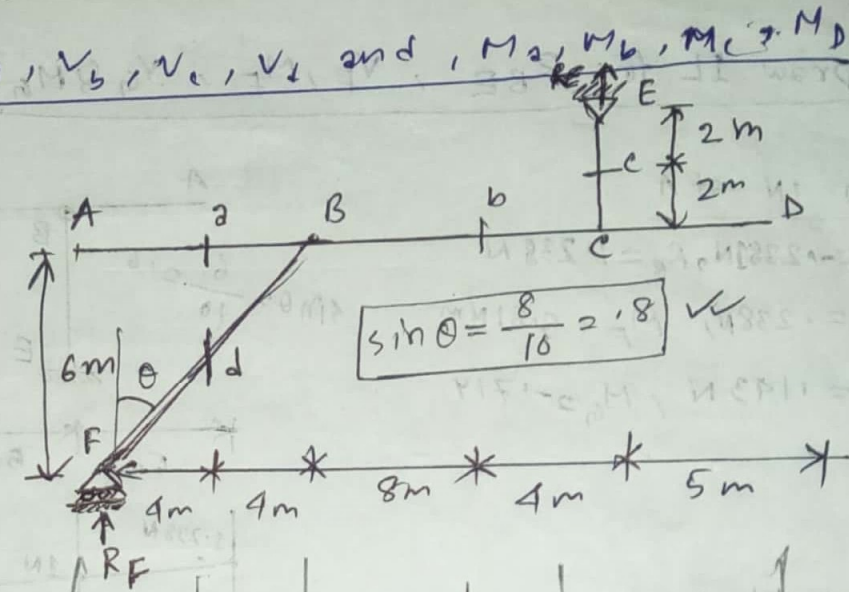 , V_b, V_c, V_d and, M_a, M_b, M_c, M_D
R_E E
2 m
c
2m
A a B b D
C
sin θ = 8/10 = .8
6m θ d
F
4m 4m 8m 4m 5m
R_F